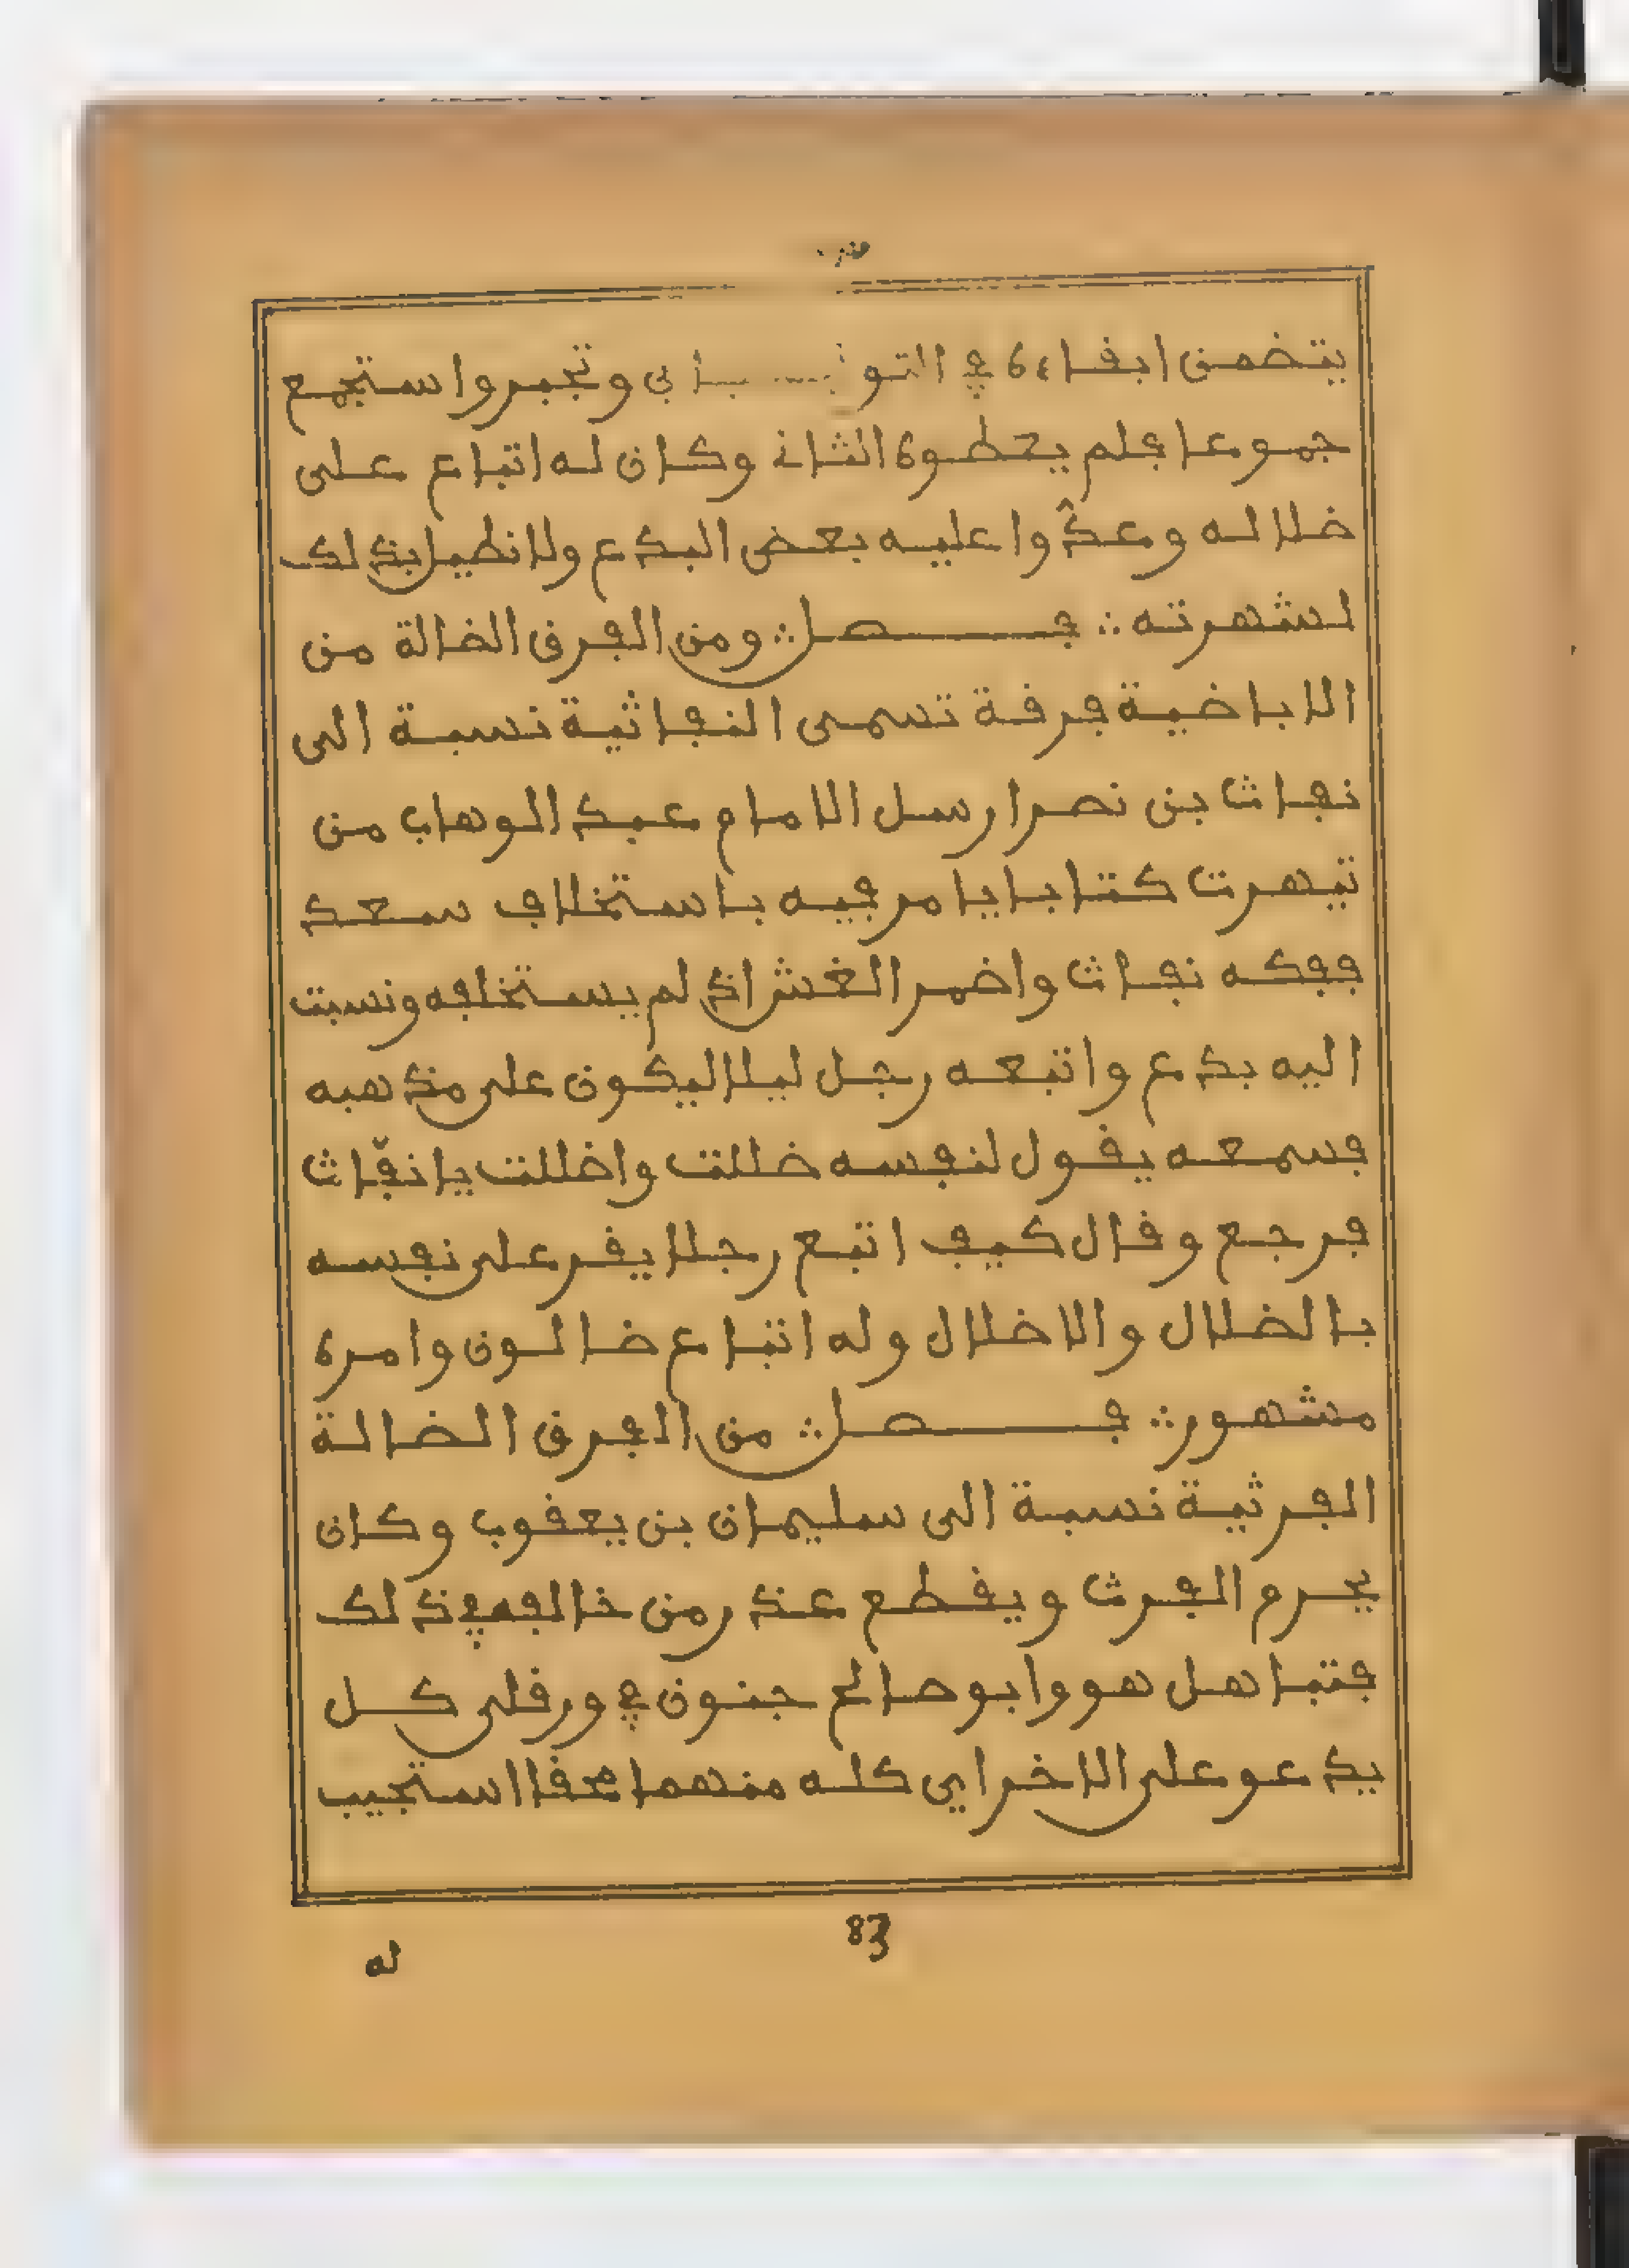 يتضمن ابقاءه في التو وتجبر واستجمع
جموعا فلم يعطوه الثانى وكان له اتباع على
ضلاله وعدّوا عليه بعض البدع ولا نطيل بذلك
لشهرته ∴ فصل ∴ ومن الفرق الضالة من
الاباضية فرقة تسمى النفاثية نسبة الى
نفاث بن نصر ارسل الامام عبد الوهاب من
تيهرت كتابا يامر فيه باستخلاف سعد
ففكه نفاث واضمر الغش اذ لم يستخلفه ونسبت
اليه بدع واتبعه رجل ليلا ليكون على مذهبه
فسمعه يقول لنفسه ضللت واضللت يا نفّاث
فرجع وقال كيف اتبع رجلا يقر على نفسه
بالضلال والاضلال وله اتباع ضالون وامره
مشهور ∴ فصل ∴ من الفرق الضالة
الفرثية نسبة الى سليمان بن يعقوب وكان
يحرم الفرث ويقطع عذر من خالفه في ذلك
فتباهل هو وابو صالح جنون في ورقلى كل
يدعو على الاخر اي كله منهما محقا استجيب
83
له